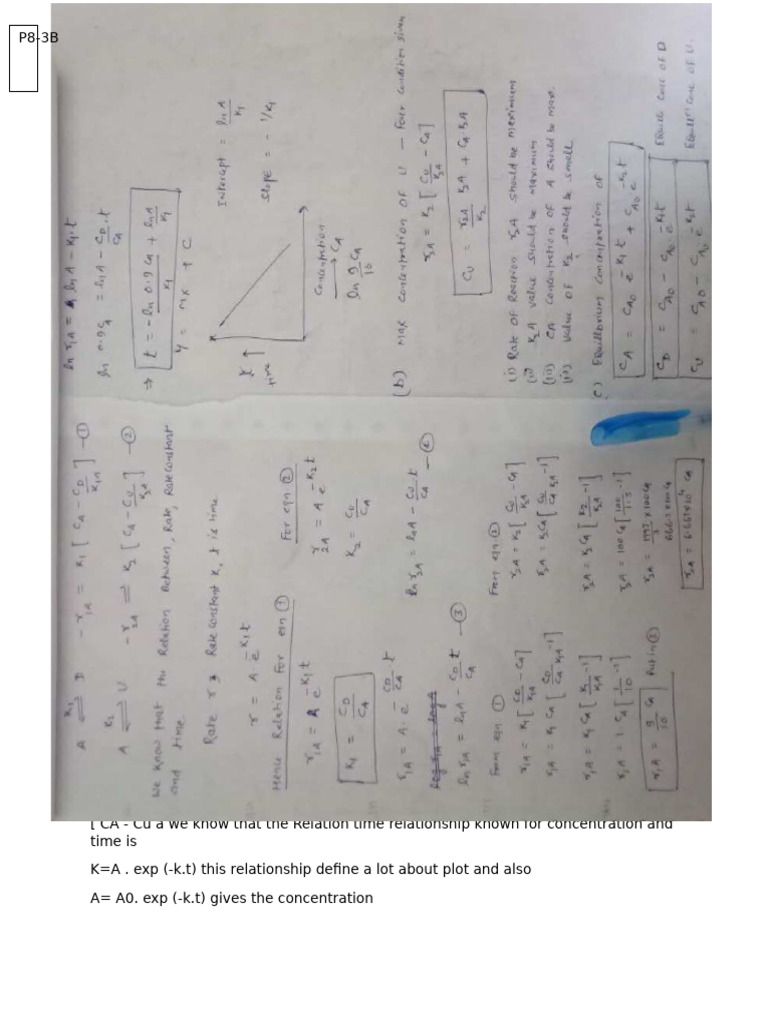 P8-3B
A ⇌ D  - r1A = K1 [ CA - CD/K1A ] —①
A ⇌ U  - r2A = K2 [ CA - CU/K2A ] —②
We know that the Relation Between, Rate, Rate constant
and time
Rate r & Rate constant K, t is time
r = A. e^-K1t
Hence Relation For eqn ①
For eqn ②
r1A = A e^-K1t
r2A = A e^-K2t
K1 = CD/CA
K2 = CU/CA
r1A = A. e^-CD/CA . t
ln r1A = ln A - CD/CA t —③
ln r2A = ln A - CU/CA t —④
From eqn ①
r1A = K1 [ CD/K1A - CA ]
r1A = K1 CA [ CD/CA K1A -1 ]
r1A = K1 CA [ K1/K1A -1 ]
r1A = 1. CA [ 1/10 -1 ]
r1A = 9/10 CA Put in ③
From eqn ②
r2A = K2 [ CU/K2A - CA ]
r2A = K2 CA [ CU/CA K2A -1 ]
r2A = K2 CA [ K2/K2A -1 ]
r2A = 100 CA [ 100/1.5 -1 ]
ln r1A = ln A - K1.t
ln 0.9 CA = ln A - CD/CA .t
⇒ t = - ln 0.9 CA/K1 + ln A/K1
Y = mx + C
Intercept = ln A/K1
Slope = - 1/K1
time
Concentration
CA
ln 9/10 CA
(b) Max concentration of U — Four condition given
r2A = K2 [ CU/K2A - CA ]
CU = r2A/K2 K2A + CA K2A
(i) Rate of Reaction r2A should be maximum
(ii) K2A value should be maximum
(iii) CA Concentration of A should be max.
(iv) value of K2 should be small
C) Equilibrium Concentration of
CA = CA0 e^-K1t + CA0 e^-K2t
CD = CA0 - CA0 e^-K1t Equili Conc of D
CU = CA0 - CA0 e^-K2t Equili Conc of U.
[ CA - Cu a we know that the Relation time relationship known for concentration and
time is
K=A . exp (-k.t) this relationship define a lot about plot and also
A= A0. exp (-k.t) gives the concentration